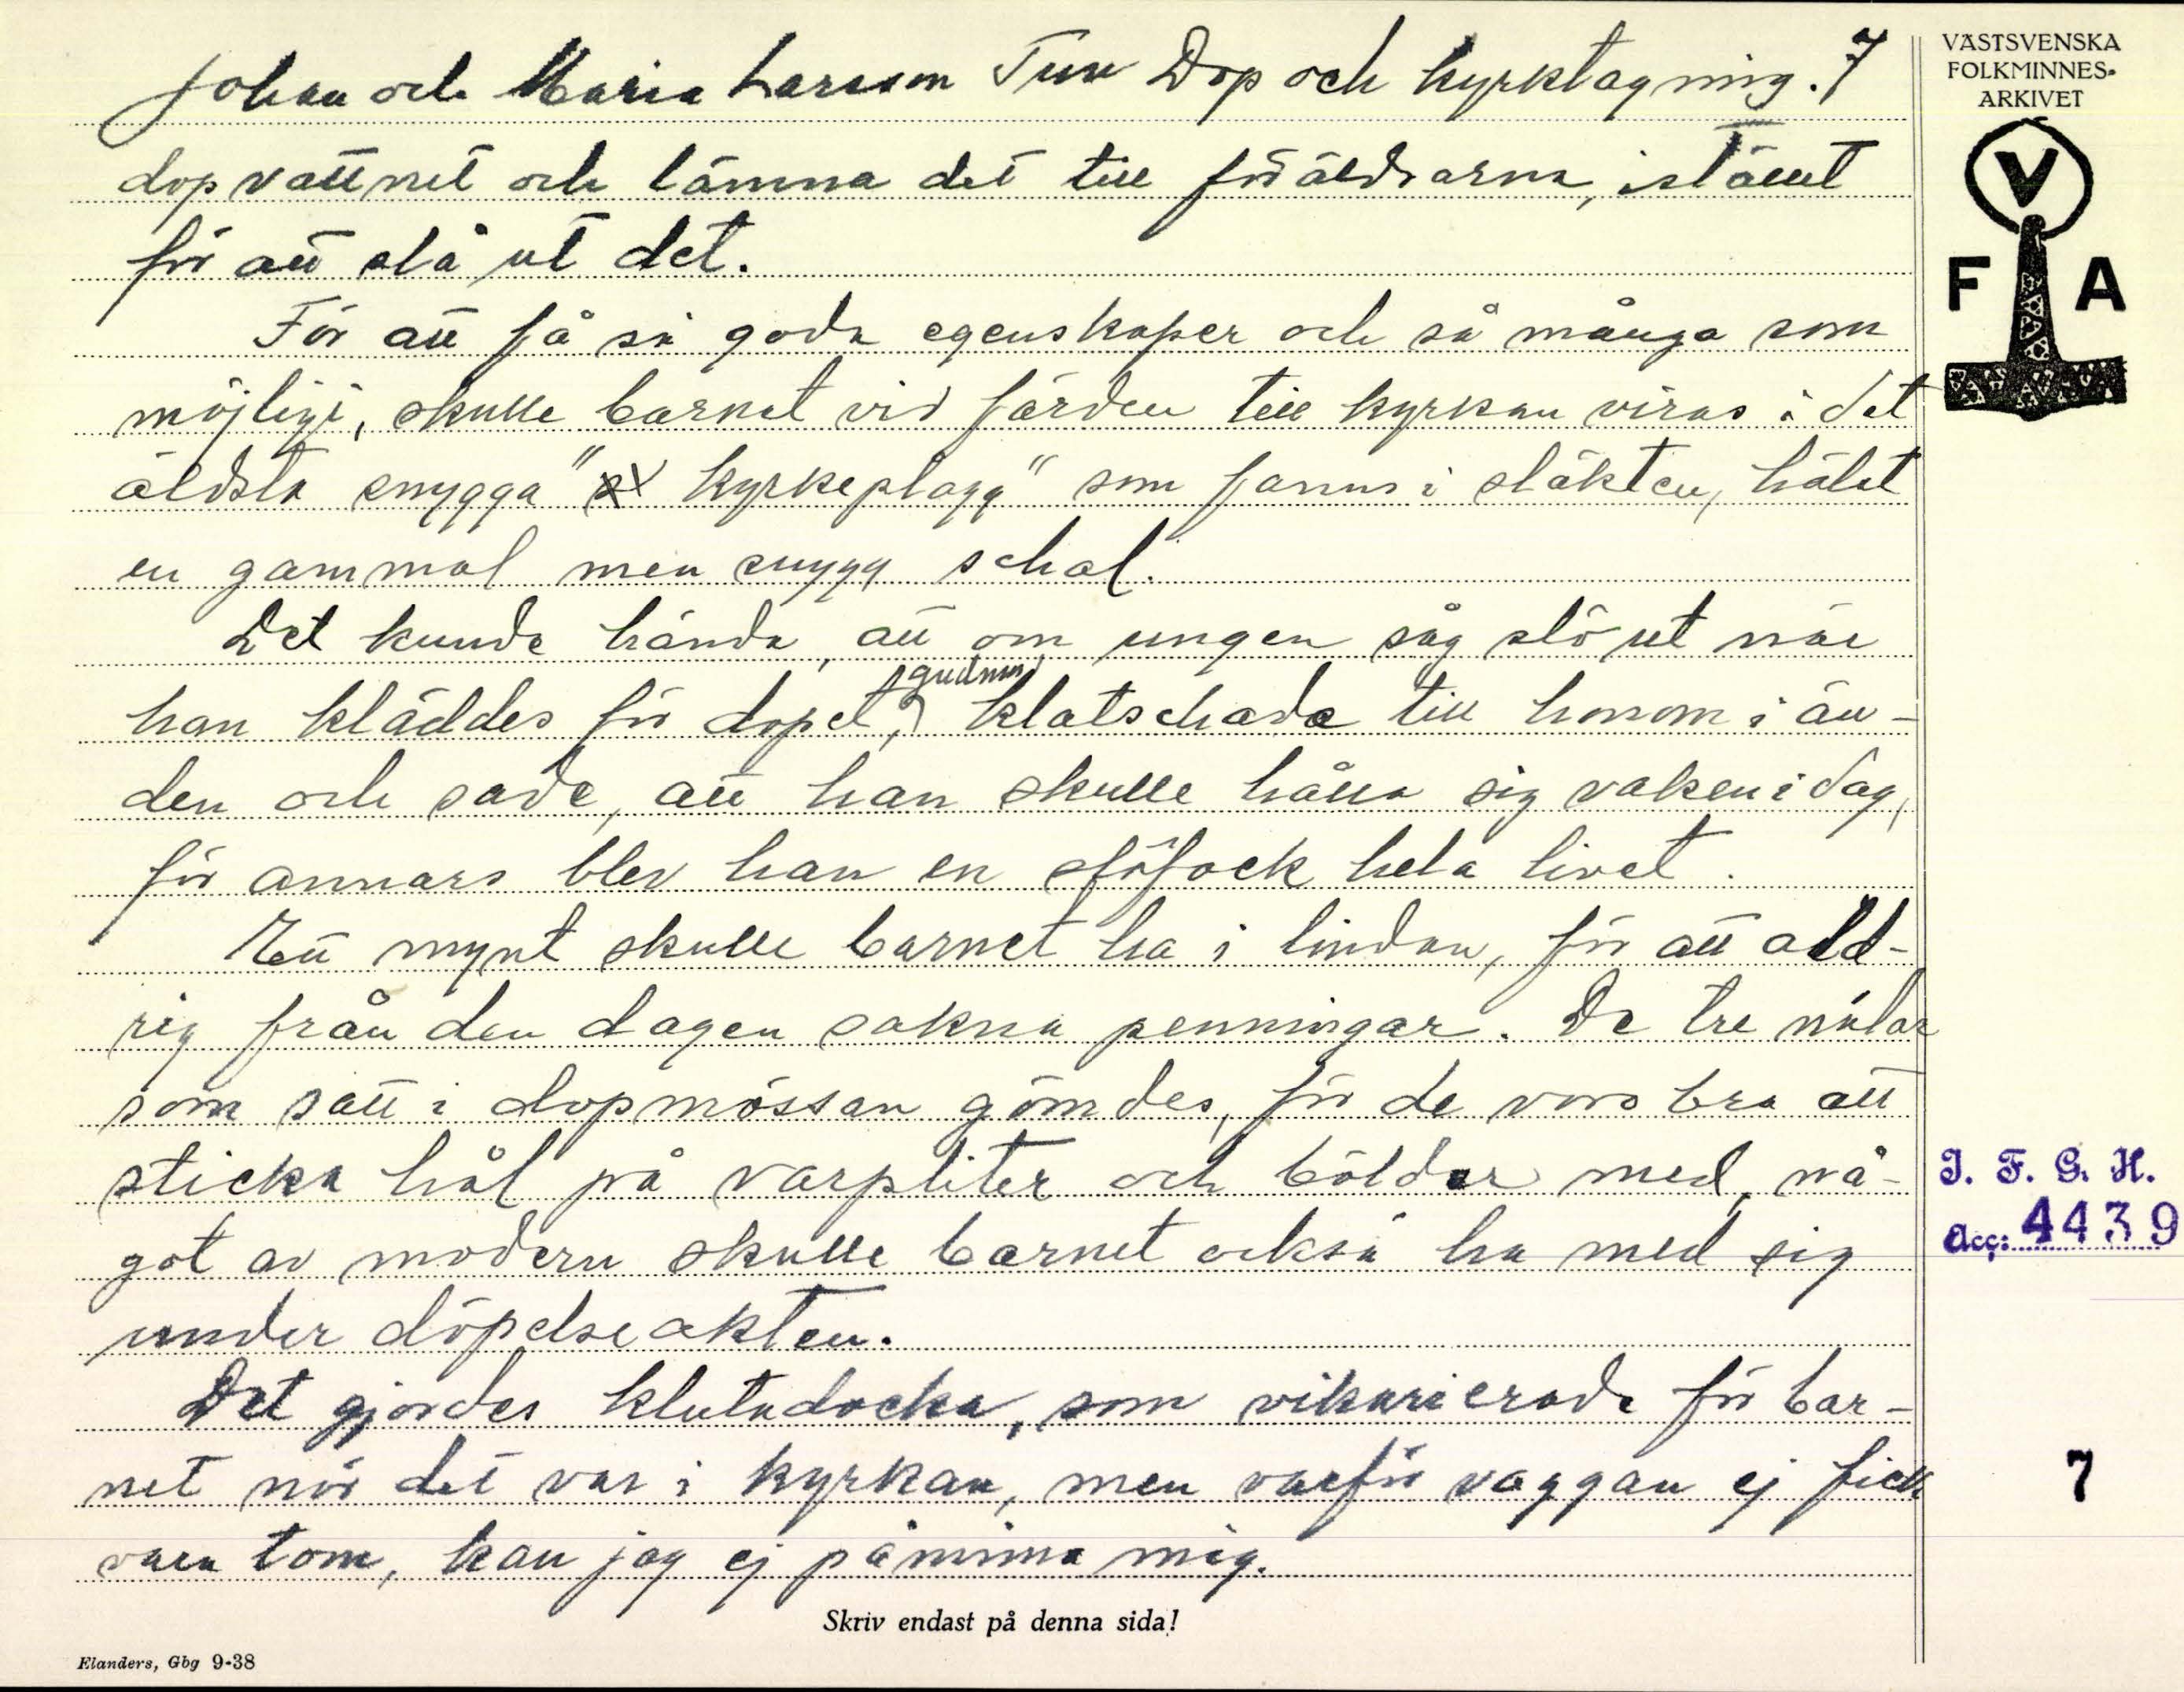 Johan och Maria Larsson Tun Dop och kyrktagning. 7
dopvattnet och lämna det till föräldrarna, istället
för att slå ut det.
För att få så goda egenskaper och så många som
möjligt, skulle barnet vid färden till kyrkan viras i det
äldsta snygga "kyrkeplagg" som fanns i släkten, hälst
en gammal men snygg schal.
Det kunde hända, att om ungen såg slö ut när
han kläddes för dopet, gudmor klatschade till honom i än-
den och sade, att han skulle hålla sig vaken i dag,
för annars blev han en slöfock hela livet.
Ett mynt skulle barnet ha i lindan, för att ald-
rig från den dagen sakna penningar. De tre nålar
som satt i dopmössan gömdes, för de voro bra att
sticka hål på varpliter och bölder med, nå-
got av modern skulle barnet också ha med sig
under döpelseakten.
Det gjordes klutadocka, som vikarierade för bar-
net när det var i kyrkan, men varför vaggan ej fick
vara tom, kan jag ej påminna mig.
Skriv endast på denna sida!
Elanders, Gbg 9-38
VÄSTSVENSKA
FOLKMINNES-
ARKIVET
V
F A
I. F. G. H.
Acc: 4439
7